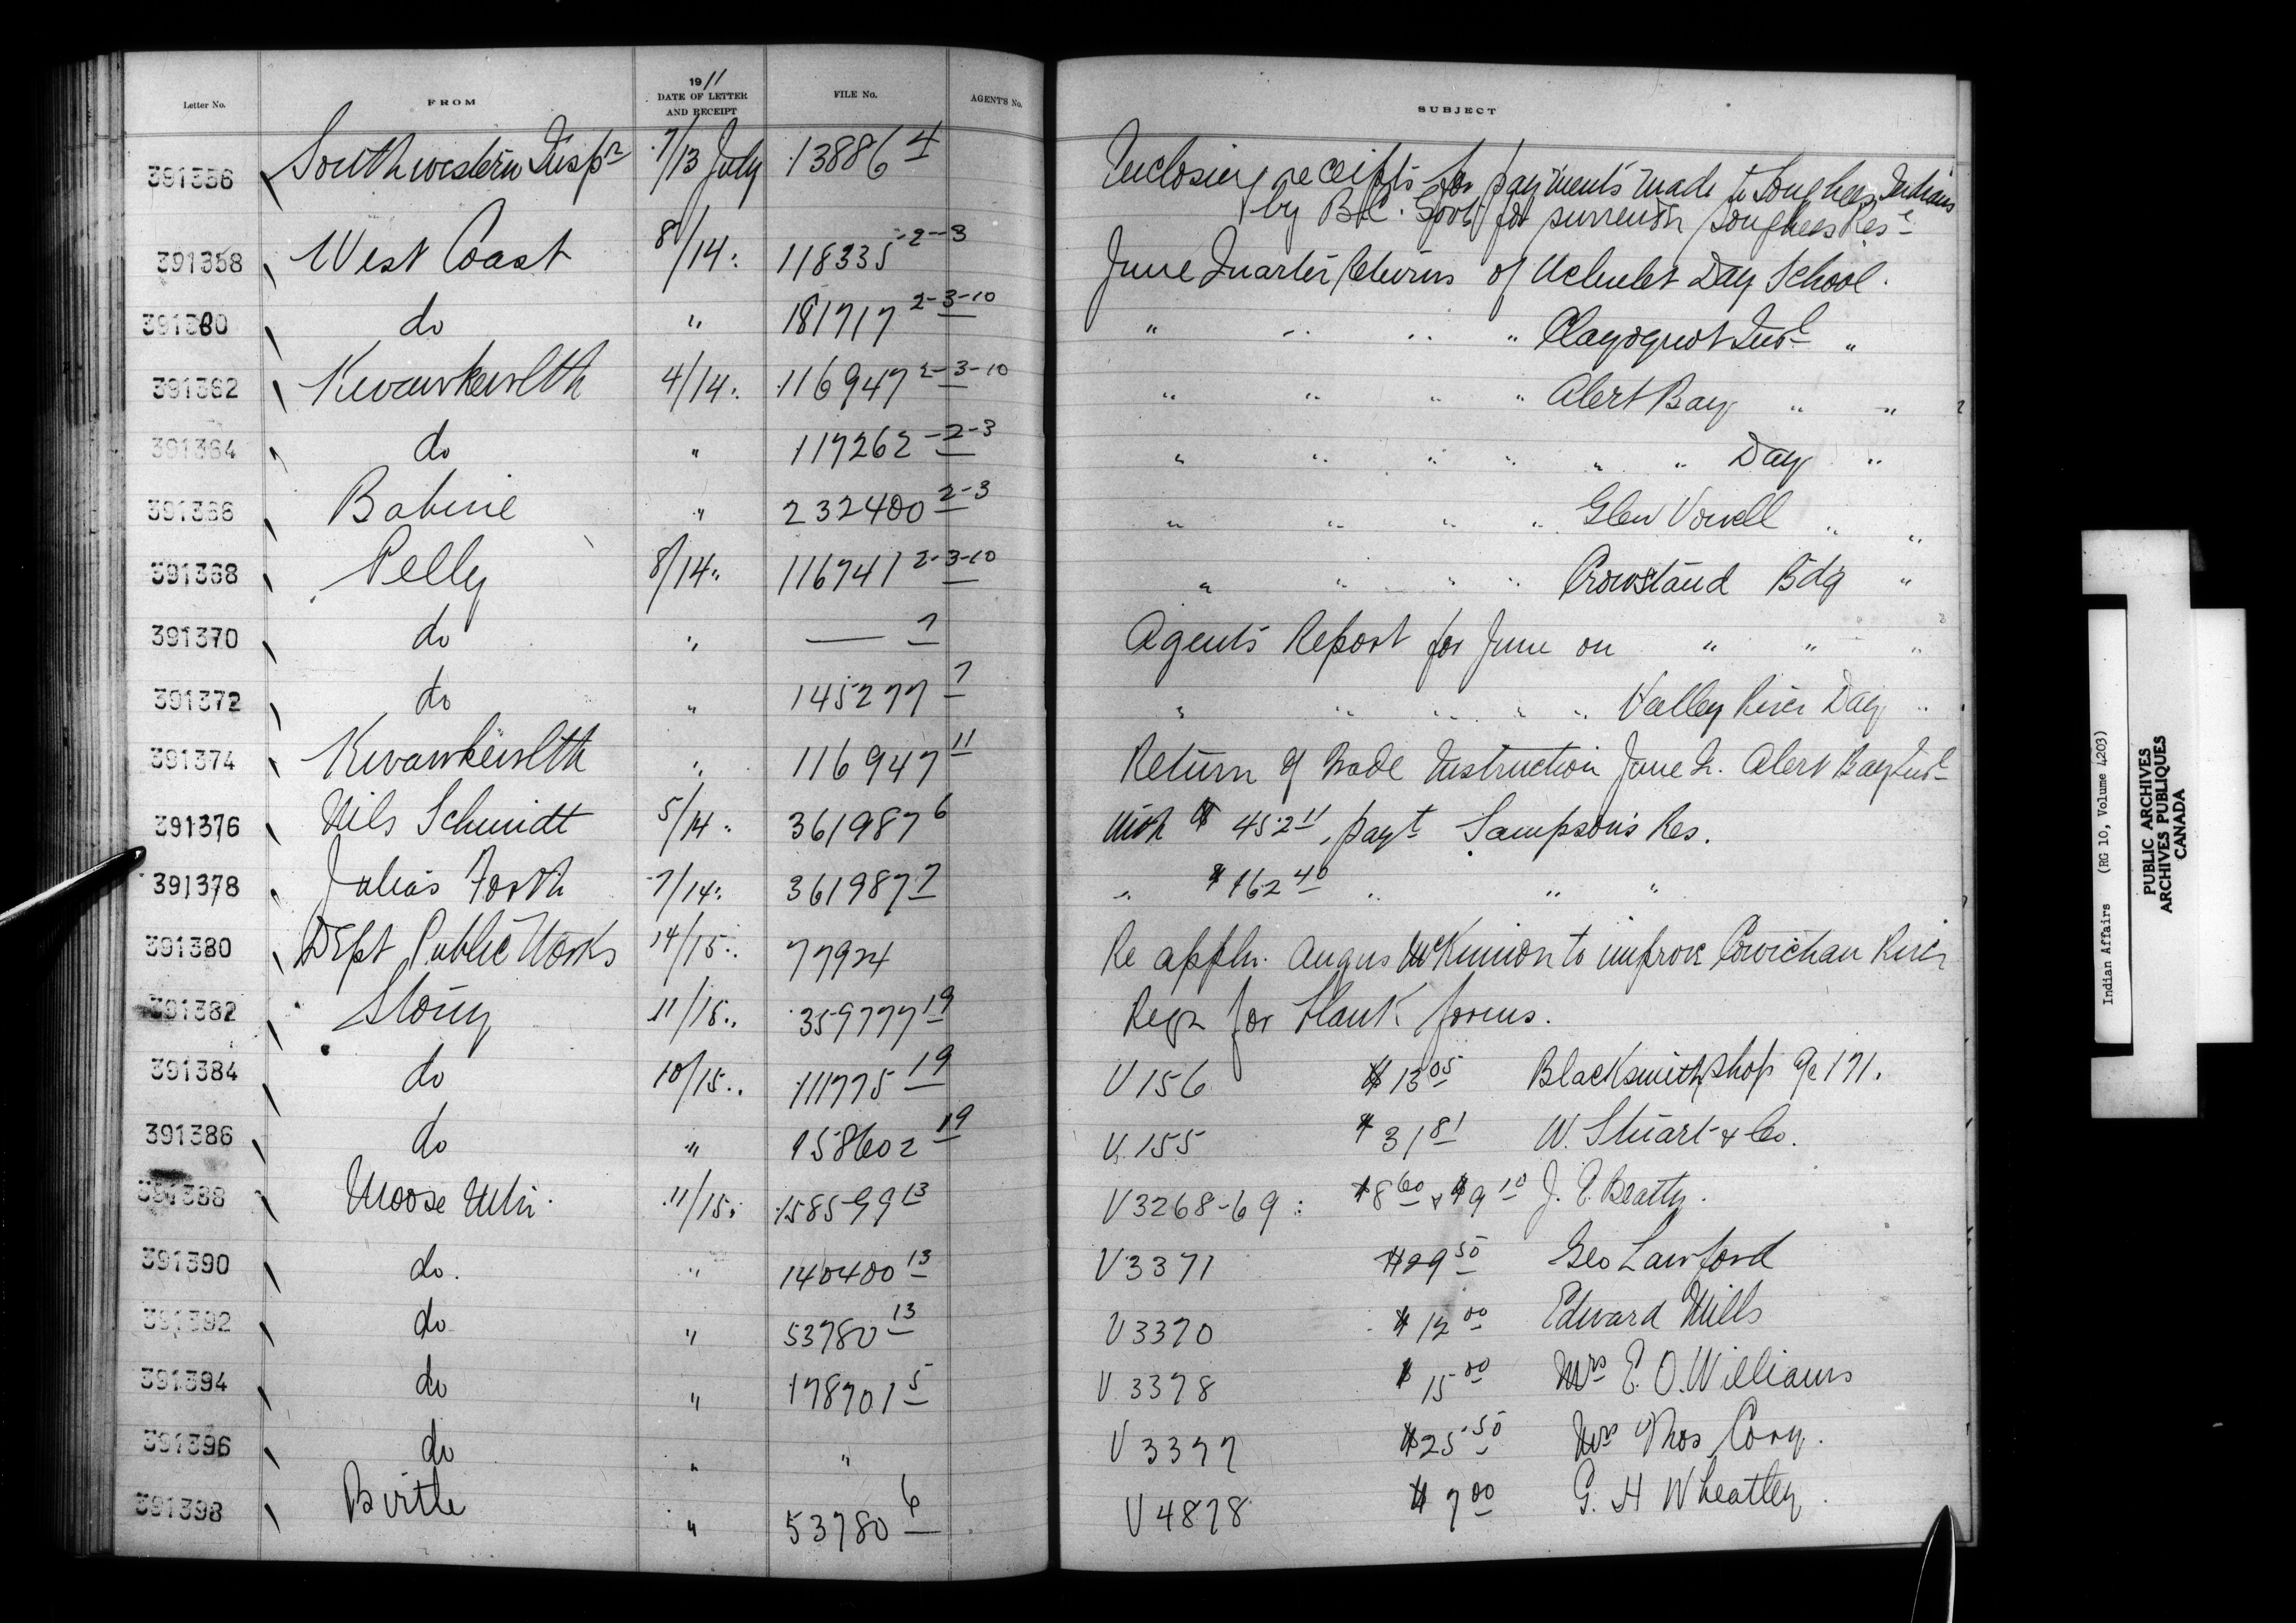 Letter No. FROM 19 11 DATE OF LETTER AND RECEIPT FILE No. AGENT'S No. SUBJECT
391356 Southwestern Insp n 7/13 July 13886 4 Inclosing receipts for payments made to Songhees Indians
by B.C. Govt for surrender Songhees Res e
391358 West Coast 8/14 " 118335-2-3 June Quarter Returns of Ucluelet Day School.
391360 do " 181717 2-3-10 " " " " Clayoquot Ind l "
391362 Kwawkewlth 4/14 " 116947 2-3-10 " " " " Alert Bay " "
391364 do " 117262-2-3 " " " " " " Day "
391366 Babine " 232400 2-3 " " " " Glen Vowell " "
391368 Pelly 8/14 " 116741 2-3-10 " " " " Crowstand Bdg "
391370 do " — 7 Agents Report for June on " " "
391372 do " 145277 7 " " " " " Valley River Day "
391374 Kwawkewlth " 116947 11 Return of Trade Instruction June Q. Alert Bay Ind l
391376 Nils Schmidt 5/14 " 361987 6 With $ 452 11, payt Sampson's Res.
391378 Julias Forth 7/14 " 361987 7 " $ 162 40 " " "
391380 Dept Public Works 14/15 " 77924 Re appln. Angus McKinnon to improve Cowichan River
391382 Stony 11/15 " 359777 19 Reqn for blank forms.
391384 do 10/15 " 111775 19 V 156 $ 13 05 Blacksmith shop a/c 171.
391386 do " 158602 19 V 155 $ 31 81 W. Stuart & Co.
391388 Moose Mtn. 11/15 " 158599 13 V3268-69 : $8 60 & $9 10 J. E. Beatty.
391390 do. " 140400 13 V3371 $29 50 Geo Lawford
391392 do " 53780 13 V3370 $ 12 00 Edward Mills
391394 do " 178701 5 V 3378 $ 15 00 Mrs E. O. Williams
391396 do " " V 3377 $25 50 Mrs Thos Cory.
391398 Birtle " 53780 6 V4878 $ 7 00 G. H Wheatley.
Indian Affairs (RG 10, Volume 4203)
PUBLIC ARCHIVES
ARCHIVES PUBLIQUES
CANADA